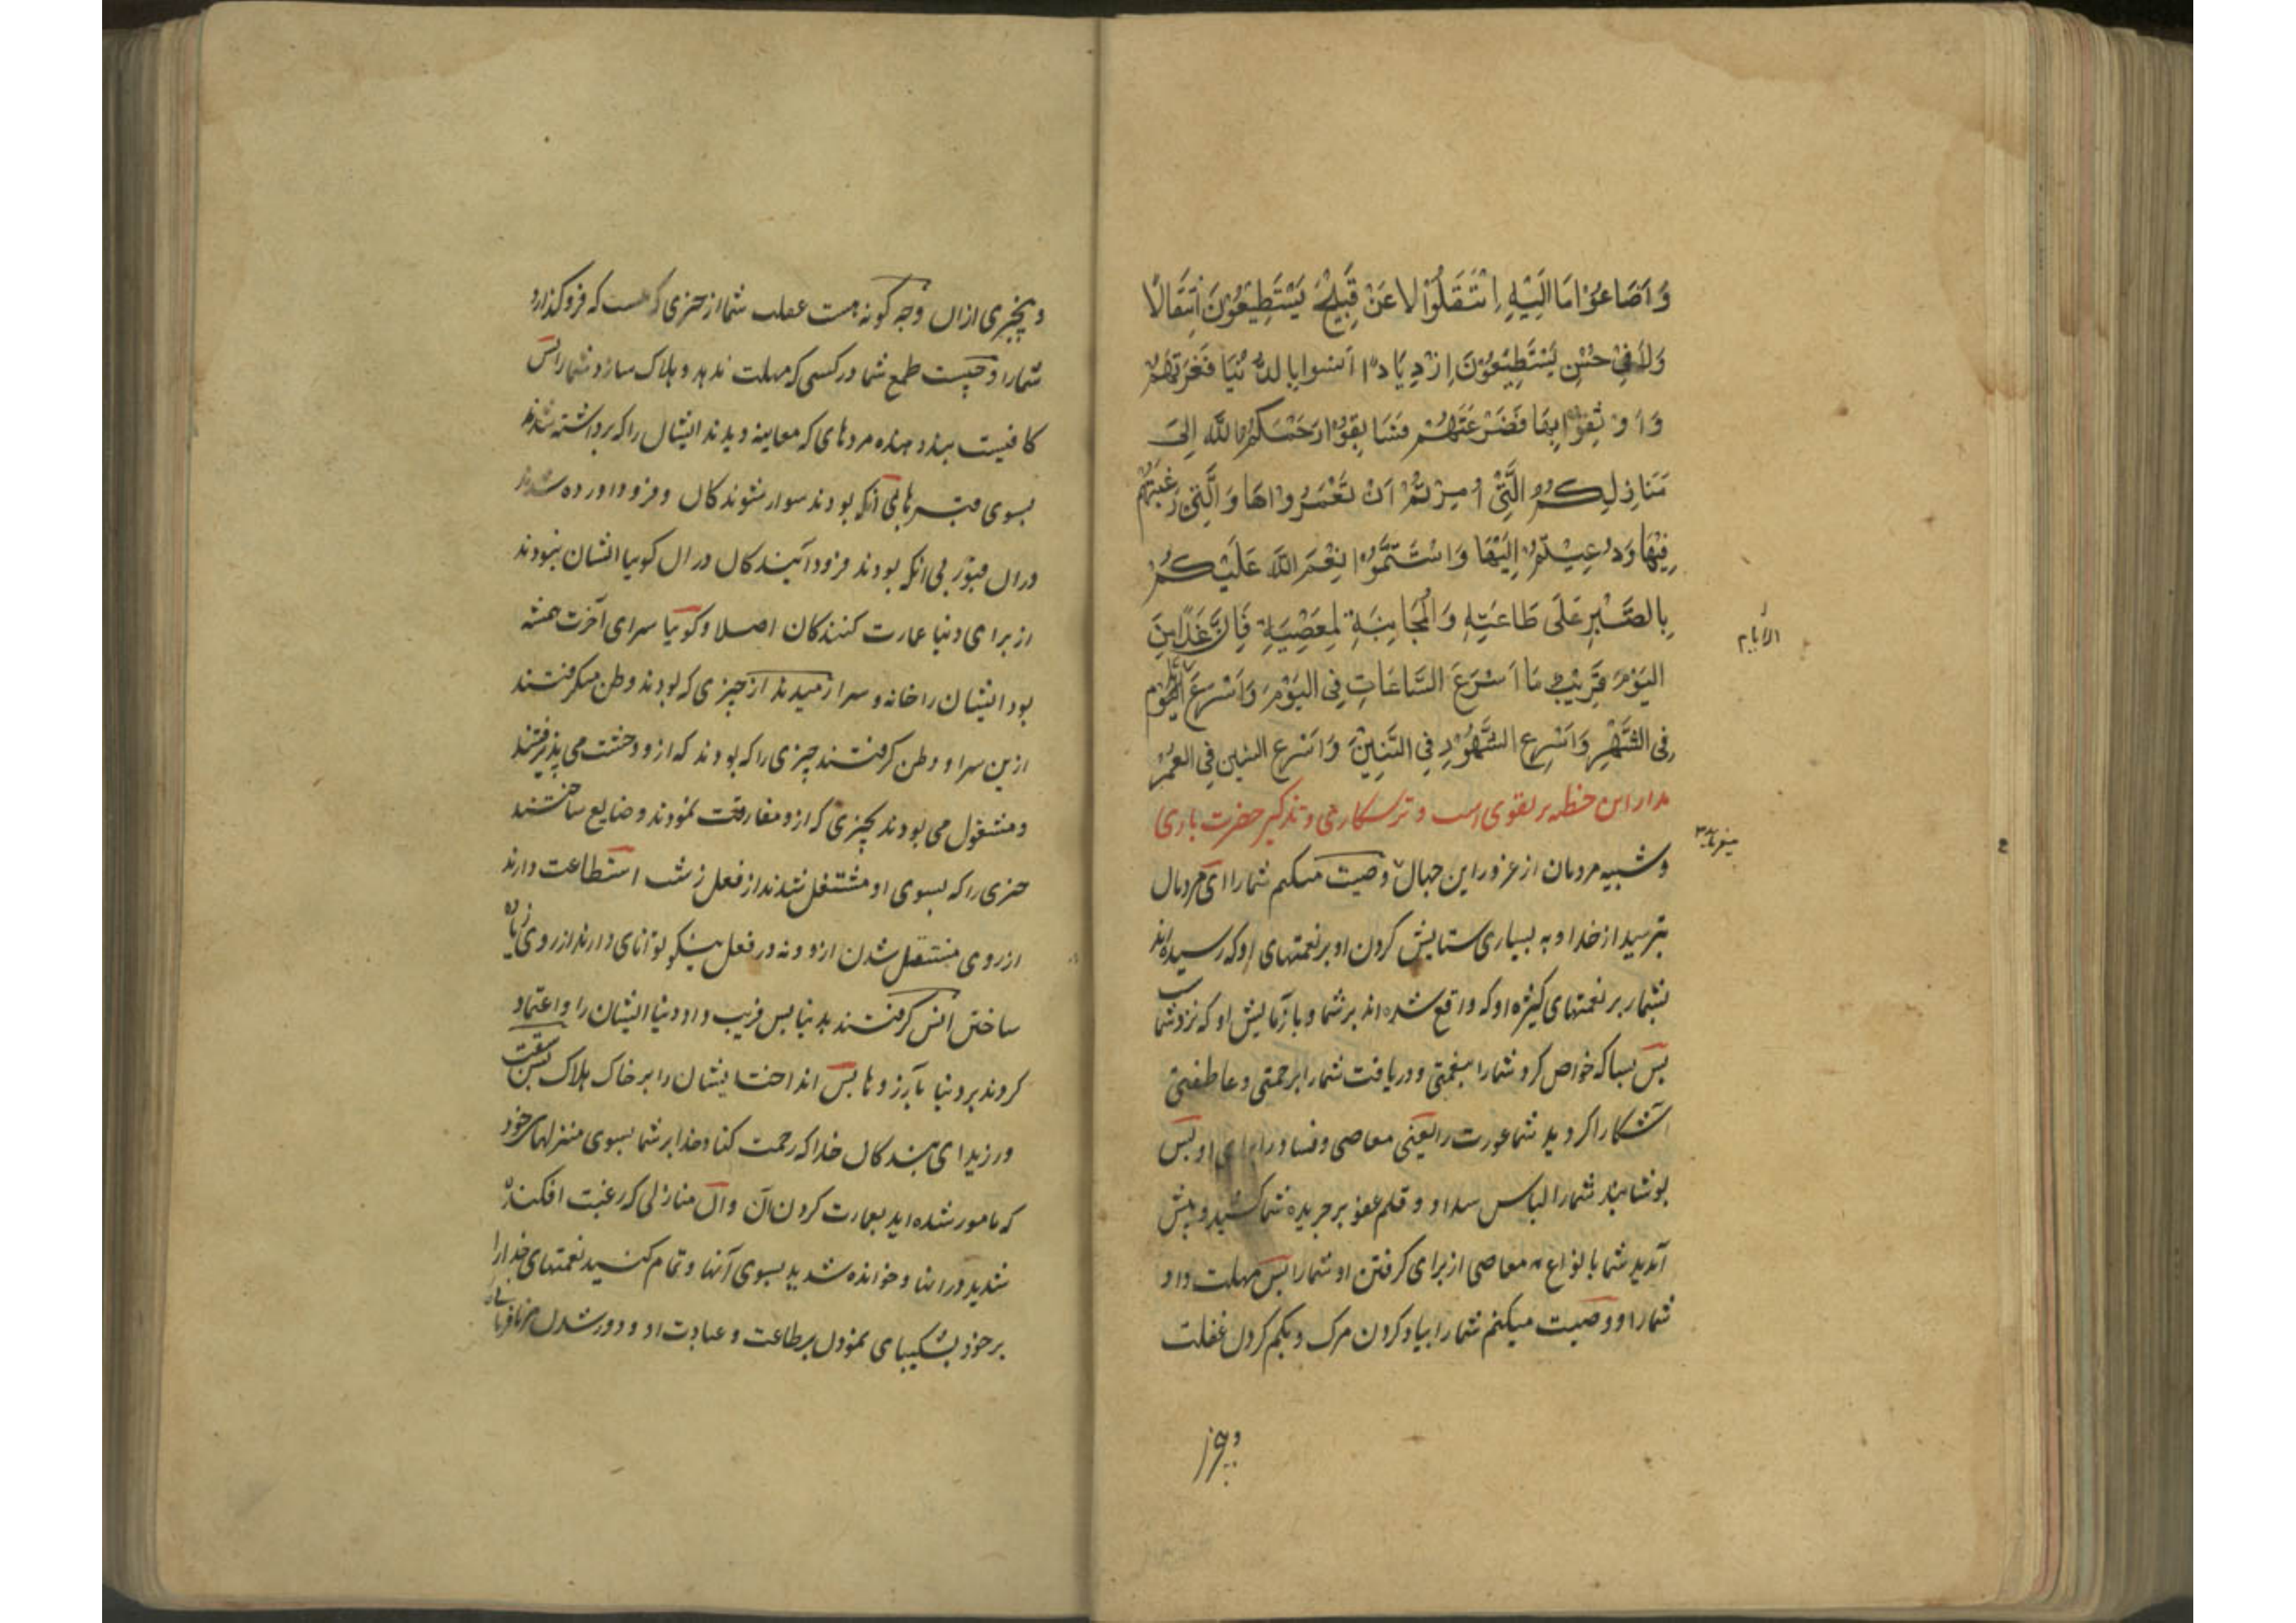 وَاَضَاعُوْا مَا اِلَيْهِ اِنْتَقَلُوْا لَا عَنْ قَبِيْحٍ يَسْتَطِيْعُوْنَ اِنْتِقَالًا
وَلَا فِيْ حُسْنٍ يَسْتَطِيْعُوْنَ اِزْدِيَادًا اَنِسُوا بِالدُّنْيَا فَغَرَّتْهُمْ
وَ وَثِقُوْا بِهَا فَصَرَعَتْهُمْ فَسَابِقُوْا رَحِمَكُمُ اللّٰهُ اِلىٰ
مَنَازِلِكُمُ الَّتِيْ اُمِرْتُمْ اَنْ تَعْمُرُوْاهَا وَالَّتِيْ رَغِبْتُمْ
فِيْهَا وَدُعِيْتُمْ اِلَيْهَا وَاسْتَتِمُّوْا نِعَمَ اللّٰهِ عَلَيْكُمْ
بِالصَّبْرِ عَلَى طَاعَتِهِ وَالْمُجَانِبَةِ لِمَعْصِيَةِ فَاِنَّ غَدًا مِنَ
الْيَوْمِ قَرِيْبٌ مَا اَسْرَعَ السَّاعَاتِ فِي الْيَوْمِ وَاَسْرَعَ اليوم
الايام
فِي الشَّهْرِ وَاَسْرَعَ الشُّهُوْرِ فِي السَّنِيْنَ وَاَسْرَعَ السنين فِي الْعُمْرِ
مدار این خطبه بر تقوی است و ترسکاری و تذکیر حضرت باری
و شبیه مردمان از غرور این جهان وصیت میکنم شما را ای مردمان
بترسید از خدا و به بسیاری ستایش کردن او بر نعمتهای او که رسیده‌اند
بشمار بر نعمتهای کثیره او که واقع شده اند بر شما و با زمایش او که نزد شما
پس بسا که خواص کرد شما را بنعمتی و دریافت شما را برحمتی و عاطفتی
آشکارا کردید شما عورت را یعنی معاصی و فساد را برای او پس
پوشانید شما را لباس سداد و قلم عفو بر جریده شما کشید و پیش
آمدید شما بانواع معاصی از برای گرفتن او شما را پس مهلت داد
شما را و وصیت میکنم شما را بیاد کردن مرک و بکم کردن غفلت
و بیخبری ازان و چه کونه هست غفلت شما از چیزی که هست که فرو کذارد
شما را و چیست طمع شما در کسی که مهلت ندهد و هلاک سازد شما را پس
کافیست پند دهنده مردهای که معاینه دیدند ایشان را که برداشته شدند
بسوی قبرها بی آنکه بودند سوار شوندکان و فرود آورده شدند
دران قبور بی انکه بودند فرود آیندکان دران کویا ایشان نبودند
از برای دنیا عمارت کنندکان اصلا و کویا سرای آخرت همیشه
بود ایشان را خانه و سرا رمیدند از چیزی که بودند وطن میکرفتند
ازین سرا و وطن کرفتند چیزی را که بودند که ازو وحشت می پذیرفتند
و مشغول می بودند بچیزی که ازو مفارقت نمودند و ضایع ساختند
چیزی را که بسوی او مشتغل شدند از فعل زشت استطاعت دارند
از روی منتقل شدن ازو و نه در فعل نیکو توانای دارند از روی زیاده
ساختن انس کرفتند بدنیا پس فریب داد دنیا ایشان را و اعتماد
کردند بر دنیا بآرزوها پس انداخت ایشان را بر خاک هلاک پس سبقت
ورزید ای بندکان خدا که رحمت کناد خدا بر شما بسوی منزلهای خود
که مامور شده اید بعمارت کردن آن و آن منازلی که رغبت افکنده
شدید در انها و خوانده شدید بسوی آنها و تمام کنید نعمتهای خدا را
بر خود بشکیبای نمودن بر طاعت و عبادت او و دور شدن از نافرمانی